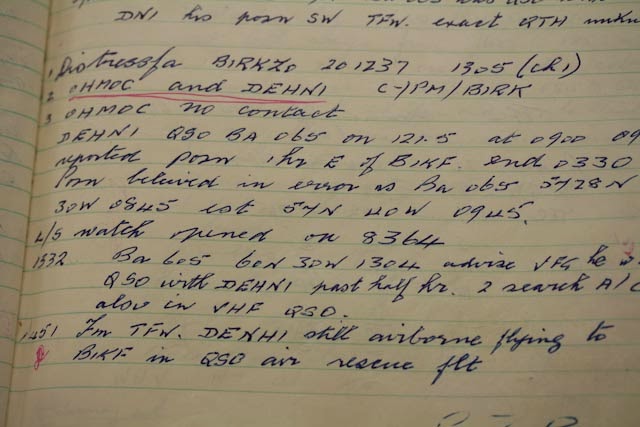 DNI hrs posn SW TFW. exact QTH
1 Distressfa BIRKZO 201237 1305 (ch1)
2 OHMOC and DEHNI C-/PM/BIRK
3 OHMOC no contact
DEHNI QSO BA 065 on 121.5 at 0900
reported posn 1hr E of BIKF. end 0330
Posn beleived in error as BA 065 5728N
30W 0845 est 57N 40W 0945.
L/S watch opened on 8364
1332 BA 605 60N 30W 1304 advise VFG he
QSO with DEHNI past half hr. 2 search A/C
also in VHF QSO.
1451 Fm TFW. DENHI still airborne flying to
BIKF in QSO air rescue flt